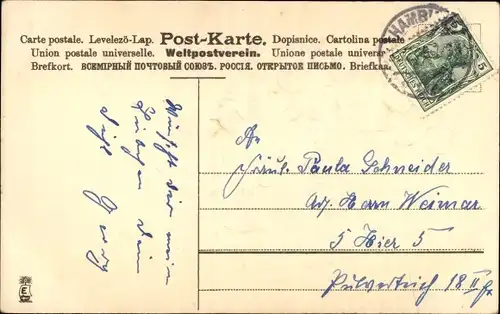 Carte postale. Levelező-Lap. Post-Karte. Dopisnice. Cartolina postale
Union postale universelle. Weltpostverein. Unione postale univer
Brefkort. ВСЕМІРНЫЙ ПОЧТОВЫЙ СОЮЗЪ. РОССІЯ. ОТКРЫТОЕ ПИСЬМО. Briefkaa
HAMBU
5
Wünscht dir mein
Liebchen dein
An
Fräul. Paula Schneider
Adj. Herrn Weimar
5 Hier 5
Pulverteich 18 II
E